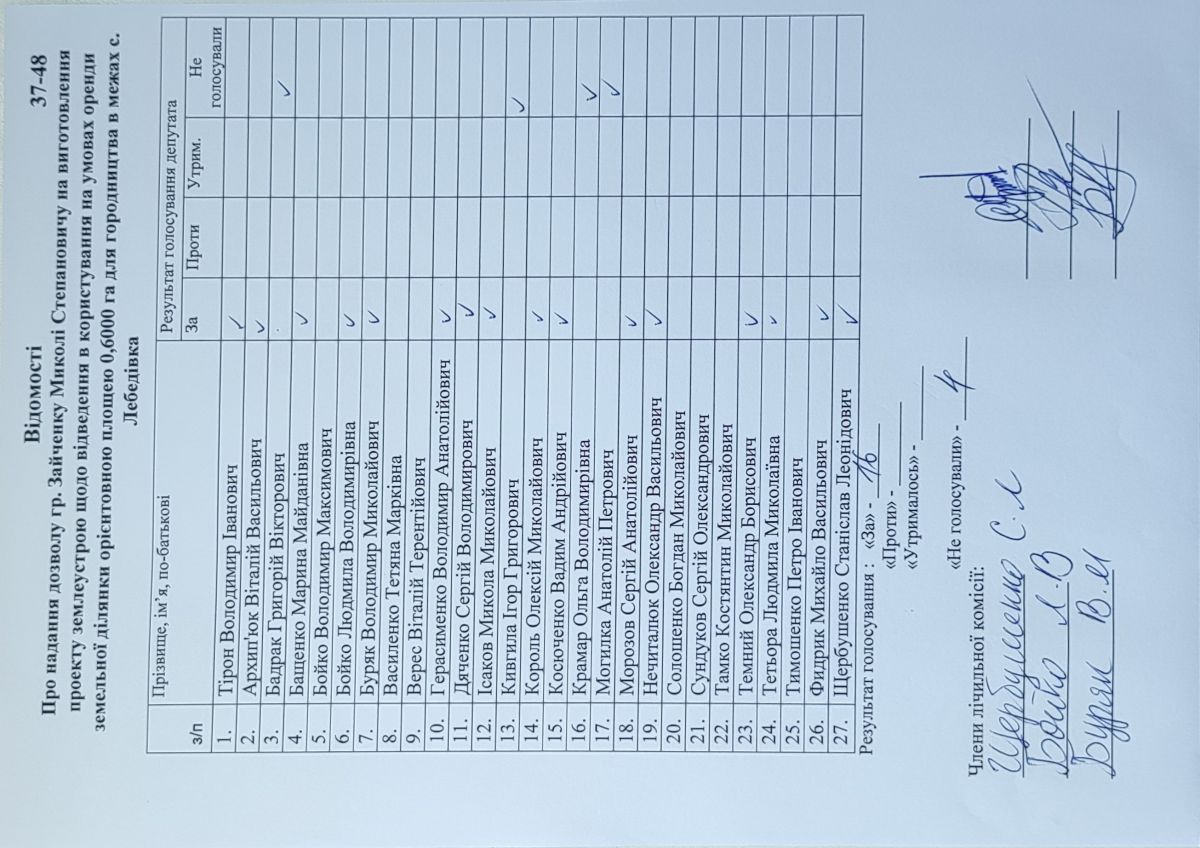 Відомості 37-48
Про надання дозволу гр. Зайченку Миколі Степановичу на виготовлення
проекту землеустрою щодо відведення в користування на умовах оренди
земельної ділянки орієнтовною площею 0,6000 га для городництва в межах с.
Лебедівка
з/п Прізвище, ім’я, по-батькові Результат голосування депутата
За Проти Утрим. Не голосували
1. Тірон Володимир Іванович ✓
2. Архип'юк Віталій Васильович ✓
3. Бадрак Григорій Вікторович ✓
4. Бащенко Марина Майданівна ✓
5. Бойко Володимир Максимович
6. Бойко Людмила Володимирівна ✓
7. Буряк Володимир Миколайович ✓
8. Василенко Тетяна Марківна
9. Верес Віталій Терентійович
10. Герасименко Володимир Анатолійович ✓
11. Дяченко Сергій Володимирович ✓
12. Ісаков Микола Миколайович ✓
13. Кивгила Ігор Григорович ✓
14. Король Олексій Миколайович ✓
15. Косюченко Вадим Андрійович ✓
16. Крамар Ольга Володимирівна ✓
17. Могилка Анатолій Петрович ✓
18. Морозов Сергій Анатолійович ✓
19. Нечиталюк Олександр Васильович ✓
20. Солошенко Богдан Миколайович
21. Сундуков Сергій Олександрович
22. Тамко Костянтин Миколайович
23. Темний Олександр Борисович ✓
24. Тетьора Людмила Миколаївна ✓
25. Тимошенко Петро Іванович
26. Фидрик Михайло Васильович ✓
27. Щербушенко Станіслав Леонідович ✓
Результат голосування : «За» - 16
«Проти» -
«Утрималось» -
«Не голосували» - 4
Члени лічильної комісії:
Щербушенко С.Л
Бойко Л.В
Буряк В.М